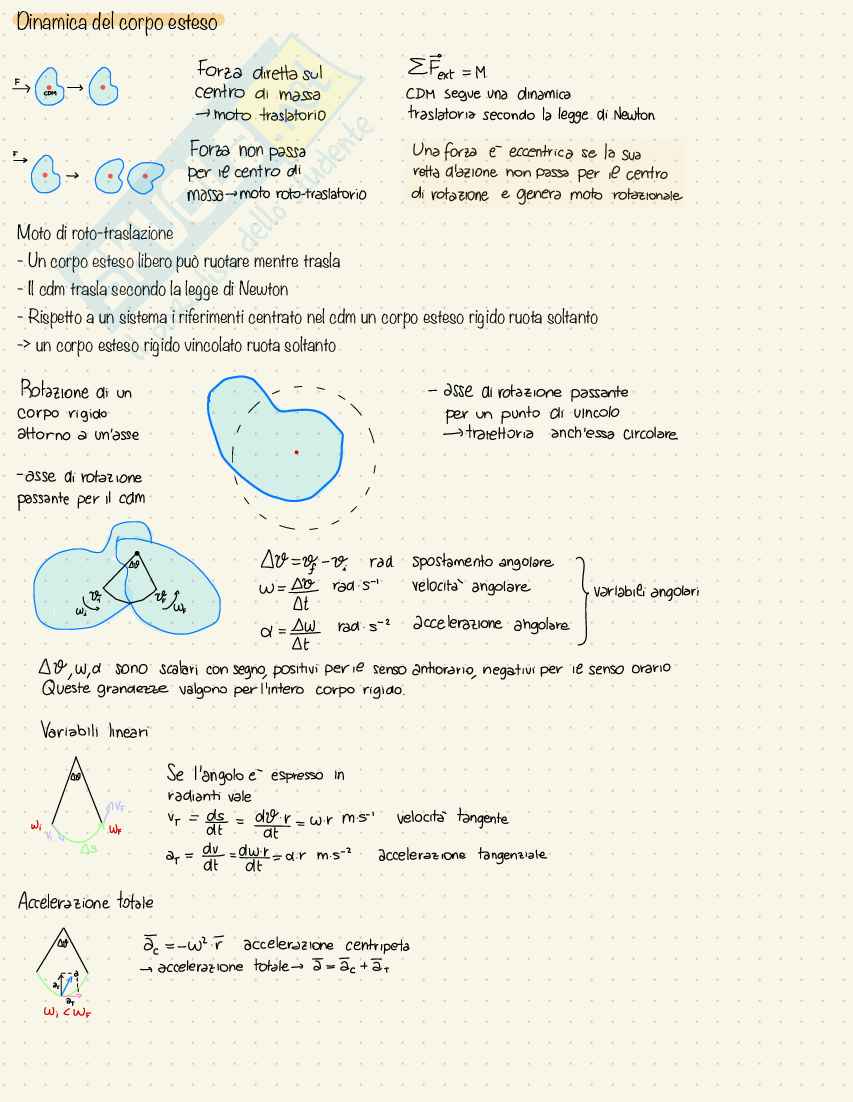 Dinamica del corpo esteso
F
CDM
Forza diretta sul
centro di massa
→ moto traslatorio
ΣF⃗ext = M
CDM segue una dinamica
traslatoria secondo la legge di Newton
F
Forza non passa
per il centro di
massa → moto roto-traslatorio
Una forza è eccentrica se la sua
retta d'azione non passa per il centro
di rotazione e genera moto rotazionale
Moto di roto-traslazione
- Un corpo esteso libero può ruotare mentre trasla
- Il cdm trasla secondo la legge di Newton
- Rispetto a un sistema i riferimenti centrato nel cdm un corpo esteso rigido ruota soltanto
-> un corpo esteso rigido vincolato ruota soltanto
Rotazione di un
corpo rigido
attorno a un'asse
- asse di rotazione
passante per il cdm
- asse di rotazione passante
per un punto di vincolo
→ traiettoria anch'essa circolare
Δϑ
ϑi
ϑf
ωi
ωF
Δϑ = ϑf - ϑi rad spostamento angolare
ω = Δϑ/Δt rad·s⁻¹ velocità angolare
α = Δω/Δt rad·s⁻² accelerazione angolare
variabili angolari
Δϑ, ω, α sono scalari con segno, positivi per il senso antiorario, negativi per il senso orario
Queste grandezze valgono per l'intero corpo rigido.
Variabili lineari
Δϑ
ωi
vi
Δs
vF
ωF
Se l'angolo è espresso in
radianti vale
vT = ds/dt = dϑ·r/dt = ω·r m·s⁻¹ velocità tangente
aT = dv/dt = dω·r/dt = α·r m·s⁻² accelerazione tangenziale
Accelerazione totale
Δϑ
ac
a
aT
ωi < ωF
a̅c = -ω²·r̅ accelerazione centripeta
→ accelerazione totale → a̅ = a̅c + a̅T